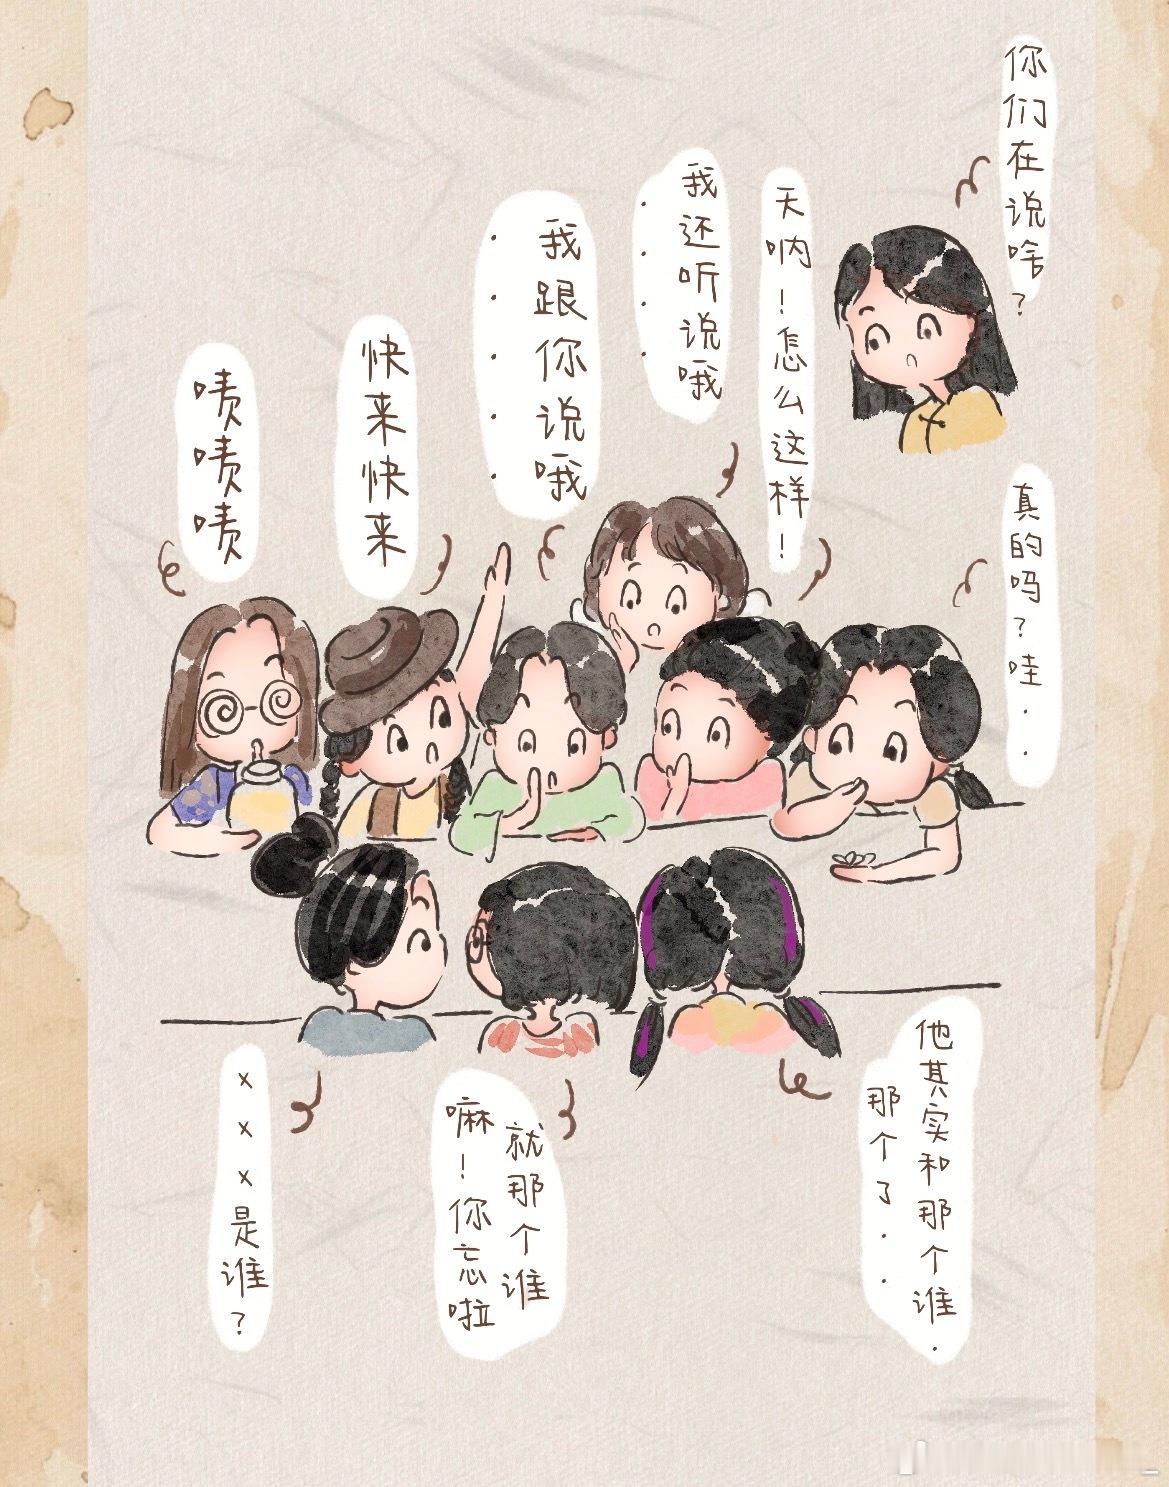 你们在说啥?
天呐!怎么这样!
我还听说哦
....
我跟你说哦
.....
快来快来
啧啧啧
真的吗?哇...
xxx是谁?
就那个谁
嘛!你忘啦
他其实和那个谁.
那个了..